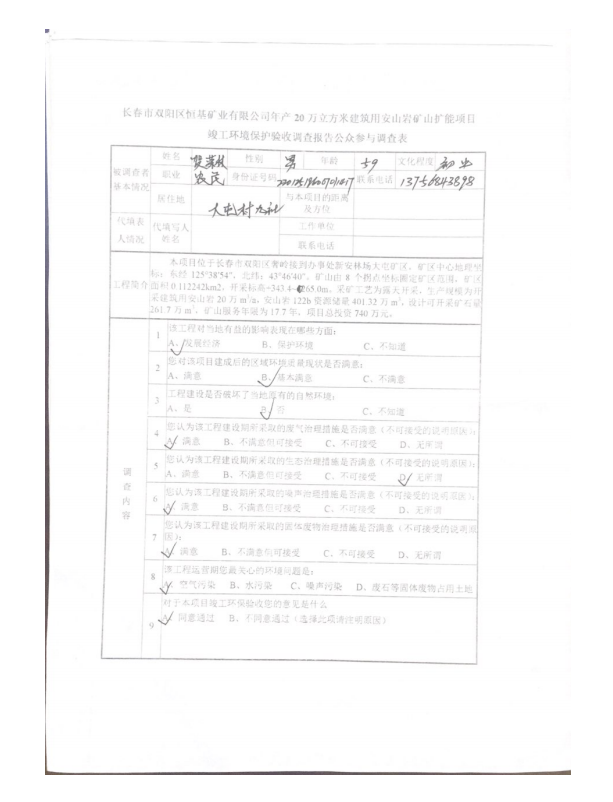 长春市双阳区恒基矿业有限公司年产 20 万立方米建筑用安山岩矿山扩能项目
竣工环境保护验收调查报告公众参与调查表
被调查者基本情况
姓名 性别 男 年龄 59 文化程度 初中
职业 农民 身份证号码 联系电话 13756843898
居住地 大屯村九社 与本项目的距离及方位
代填表人情况
代填写人姓名 工作单位
联系电话
工程简介
本项目位于长春市双阳区奢岭接到办事处新安林场大屯矿区，矿区中心地理坐
标：东经 125°38′54″，北纬：43°46′40″。矿山由 8 个拐点坐标圈定矿区范围，矿区
面积 0.112242km2，开采标高+343.4-265.0m。采矿工艺为露天开采，生产规模为开
采建筑用安山岩 20 万 m³/a，安山岩 122b 资源储量 401.32 万 m³，设计可开采矿石量
261.7 万 m³，矿山服务年限为 17.7 年，项目总投资 740 万元。
调查内容
1 该工程对当地有益的影响表现在哪些方面：
A、发展经济 B、保护环境 C、不知道
2 您对该项目建成后的区域环境质量现状是否满意：
A、满意 B、基本满意 C、不满意
3 工程建设是否破坏了当地原有的自然环境：
A、是 B、否 C、不知道
4 您认为该工程建设期所采取的废气治理措施是否满意（不可接受的说明原因）：
A、满意 B、不满意但可接受 C、不可接受 D、无所谓
5 您认为该工程建设期所采取的生态治理措施是否满意（不可接受的说明原因）：
A、满意 B、不满意但可接受 C、不可接受 D、无所谓
6 您认为该工程建设期所采取的噪声治理措施是否满意（不可接受的说明原因）：
A、满意 B、不满意但可接受 C、不可接受 D、无所谓
7 您认为该工程建设期所采取的固体废物治理措施是否满意（不可接受的说明原
因）：
A、满意 B、不满意但可接受 C、不可接受 D、无所谓
8 该工程运营期您最关心的环境问题是：
A、空气污染 B、水污染 C、噪声污染 D、废石等固体废物占用土地
9 对于本项目竣工环保验收您的意见是什么
A、同意通过 B、不同意通过（选择此项请注明原因）